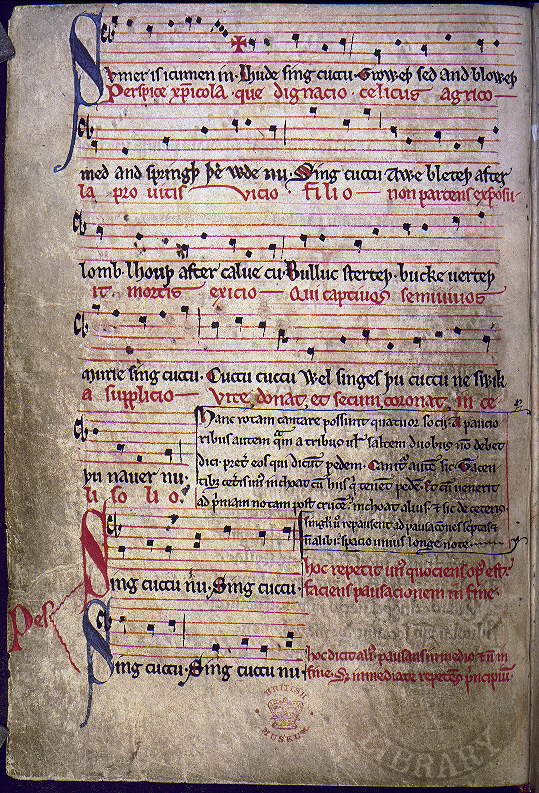 Sumer is icumen in· Lhude sing cuccu· Groweþ sed and bloweþ
Perspice xp̄icola· que dignacio· celicus agrico
med and springþ þe wde nu· Sing cuccu Awe bleteþ after
la pro uitis vicio filio non parcens exposu
lomb· lhouþ after calue cu· Bulluc sterteþ· bucke uerteþ
it mortis exicio Qui captiuos semiuiuos
murie sing cuccu· Cuccu cuccu Wel singes þu cuccu ne swik
a supplicio Vite donat et secum coronat in ce
þu nauer nu·
li so li o·
Hanc rotam cantare possunt quatuor socii· A paucio
ribus autem quam a tribus uel saltem duobus non debet
dici· preter eos qui dicunt pedem· Canitur autem sic· Tacen
tibus ceteris unus inchoat cum hiis qui tenent pedem· Et cum uenerit
ad primam notam post crucem inchoat alius· et sic de ceteris·
singuli uero repausent ad pausaciones scriptas et
non alibi· spacio unius longe note
Pes
Sing cuccu nu· Sing cuccu·
hoc repetit unus quociens opus est·
faciens pausacionem in fine·
Sing cuccu· Sing cuccu nu
hoc dicit alius· pausans in medio et non in
fine· Sed immediate repetens principium·
BRITISH MUSEUM
LIBRARY